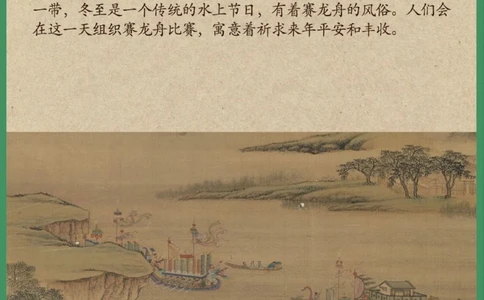 一带，冬至是一个传统的水上节日，有着赛龙舟的风俗。人们会
在这一天组织赛龙舟比赛，寓意着祈求来年平安和丰收。